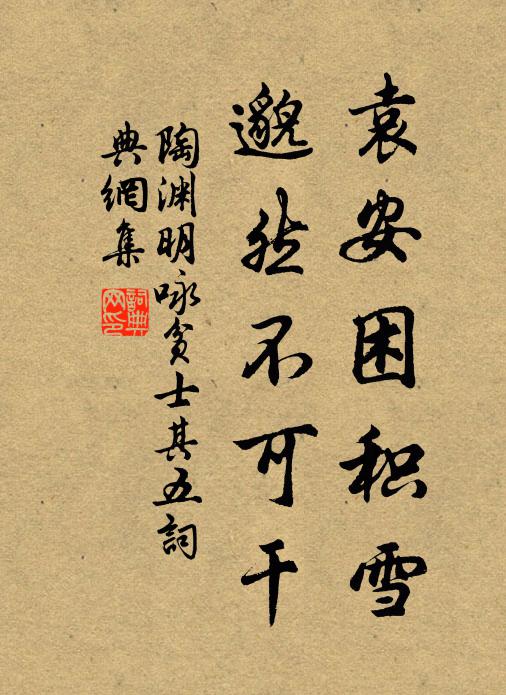 袁安困积雪
邈然不可干
陶渊明咏贫士其五词
典網集
詞典
网印